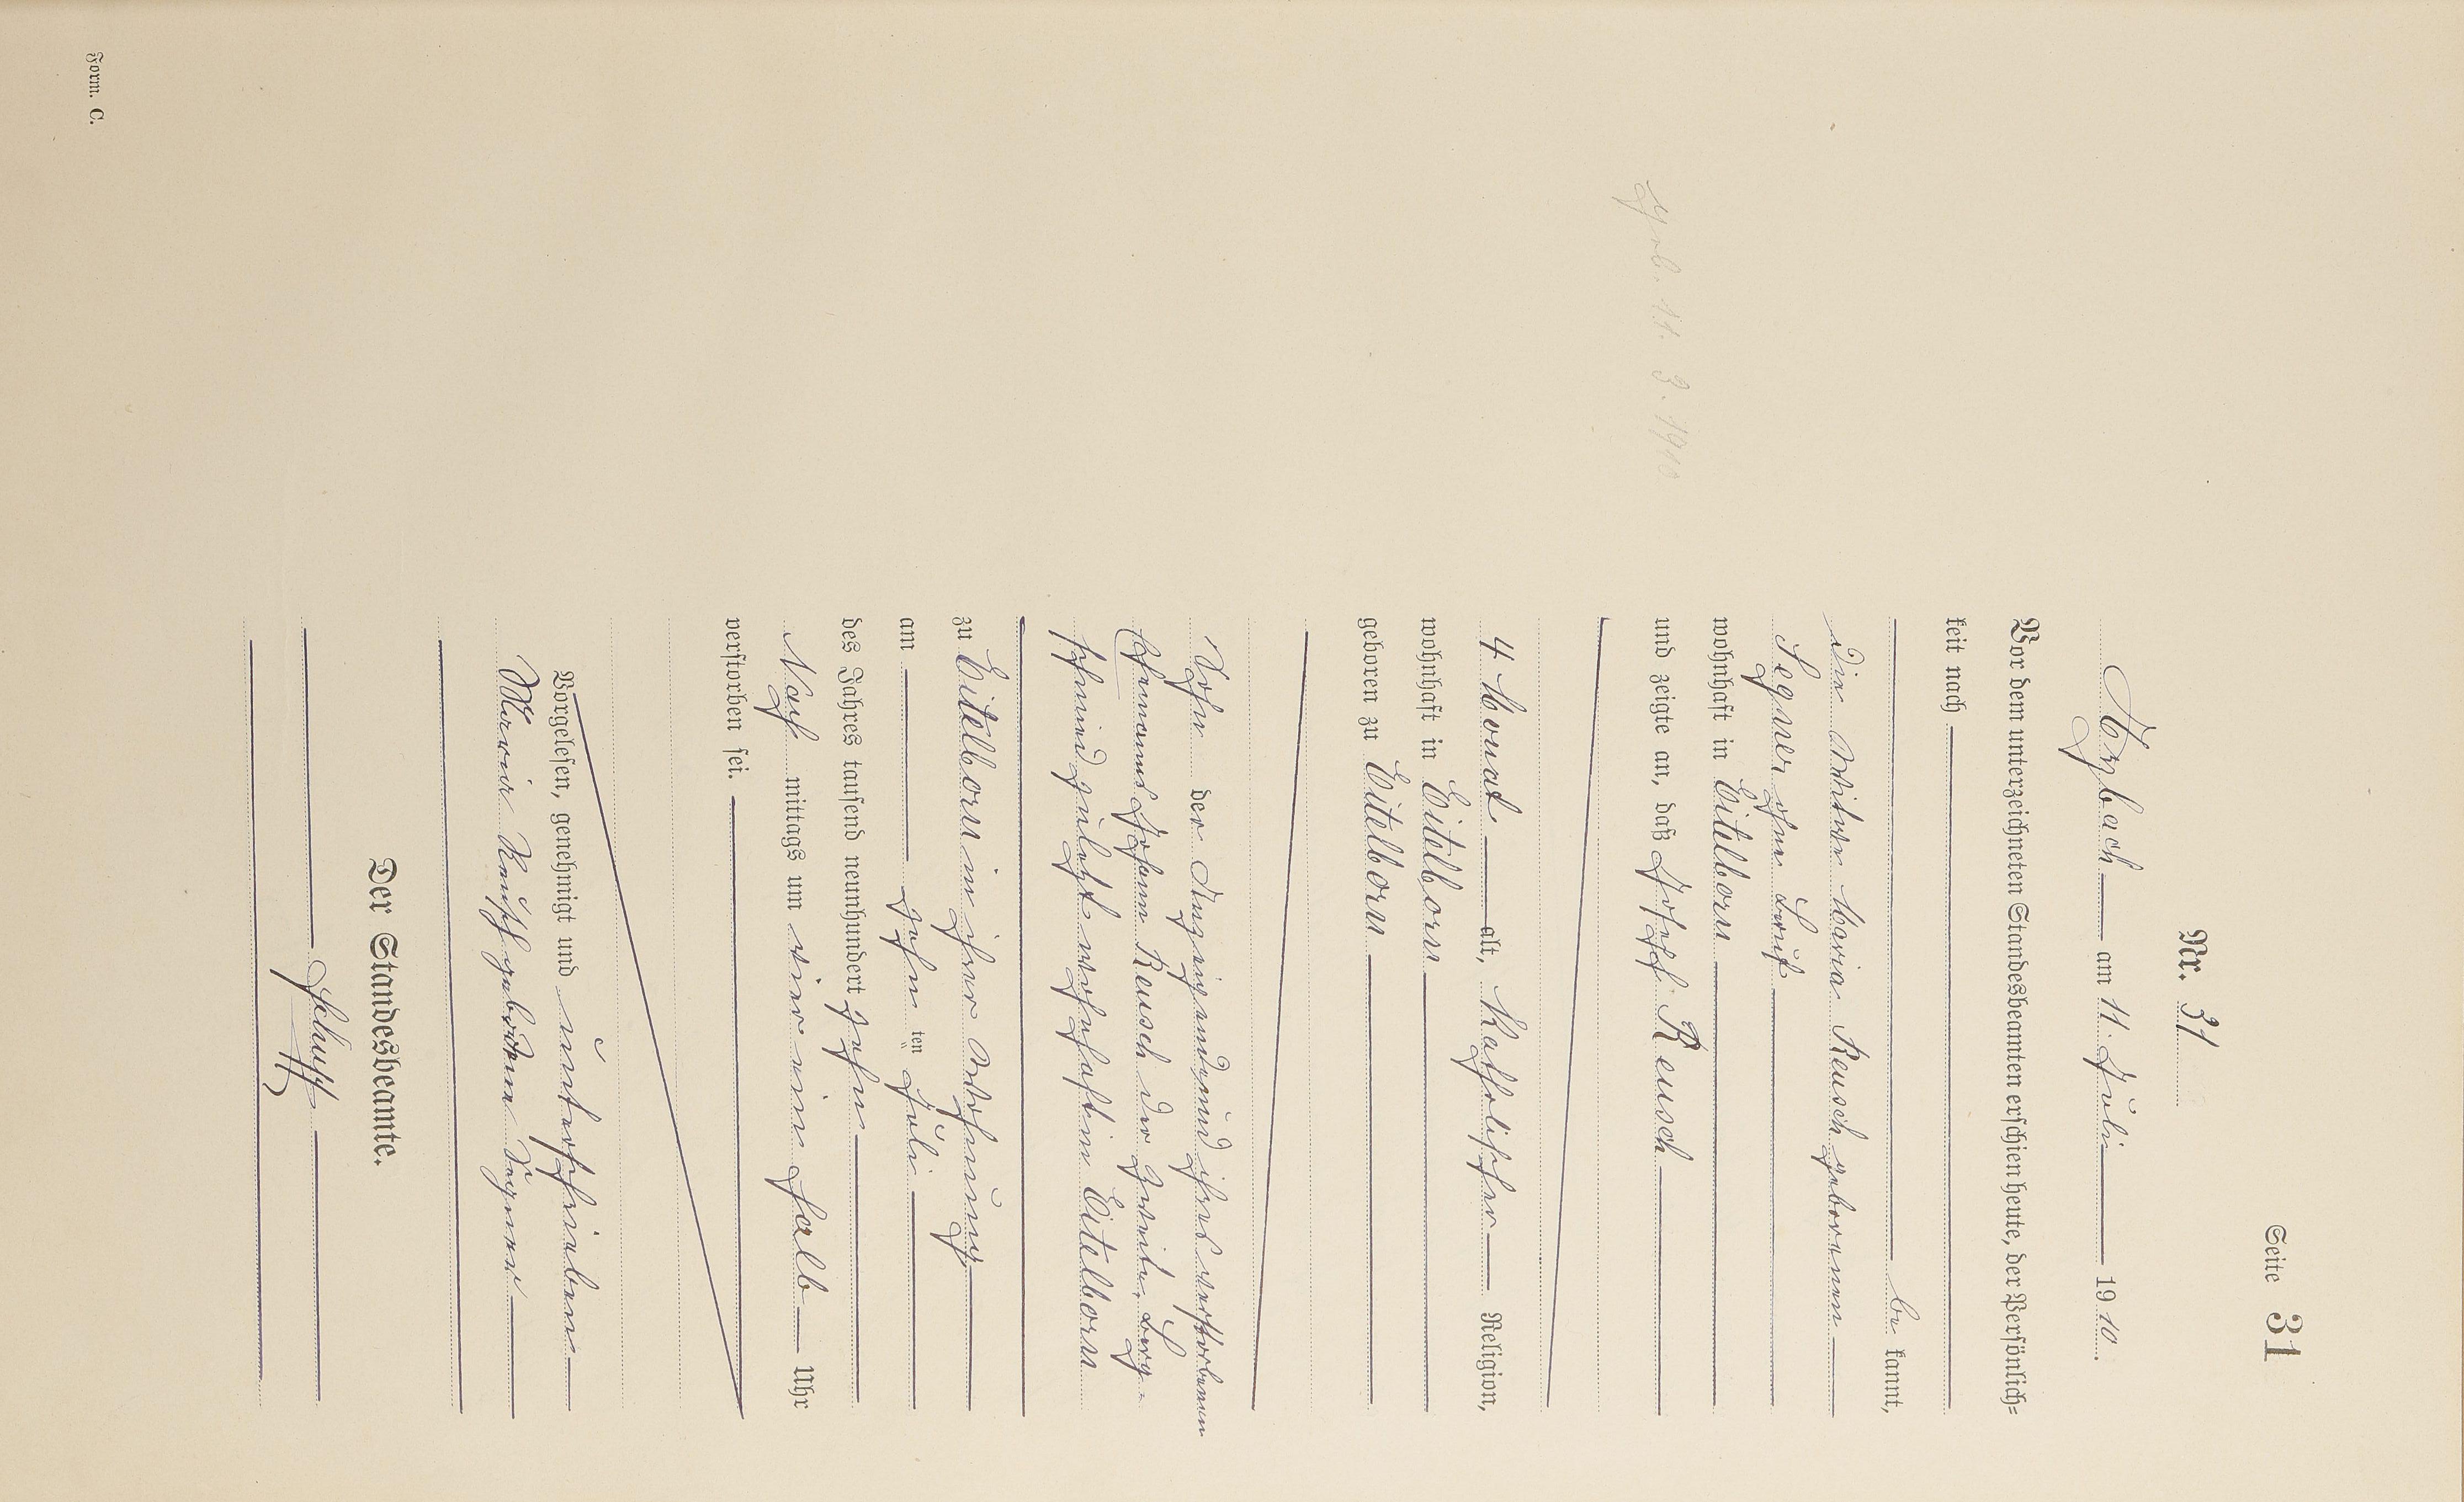 Seite 31
Nr. 31
Arzbach am 11. Juli 1910.
Vor dem unterzeichneten Standesbeamten erschien heute, der Persönlich-
keit nach
be kannt,
die Witwe Maria Reusch geborenen
Legner ohne Beruf
wohnhaft in Eitelborn
und zeigte an, daß Josef Reusch
geb. 11. 3. 1910
4 Monat alt, Katholischer Religion,
wohnhaft in Eitelborn
geboren zu Eitelborn
Sohn der Anzeigenden und ihres verstorbenen
Ehemanns Johann Reusch der zweite, Berg-
schmied zuletzt wohnhaft in Eitelborn
zu Eitelborn in ihrer Wohnung
am zehn ten Juli
des Jahres tausend neunhundert zehn
Nach mittags um vier ein halb Uhr
verstorben sei.
Vorgelesen, genehmigt und unterschrieben
Maria Reusch geborene Legner
Der Standesbeamte.
Form. C.